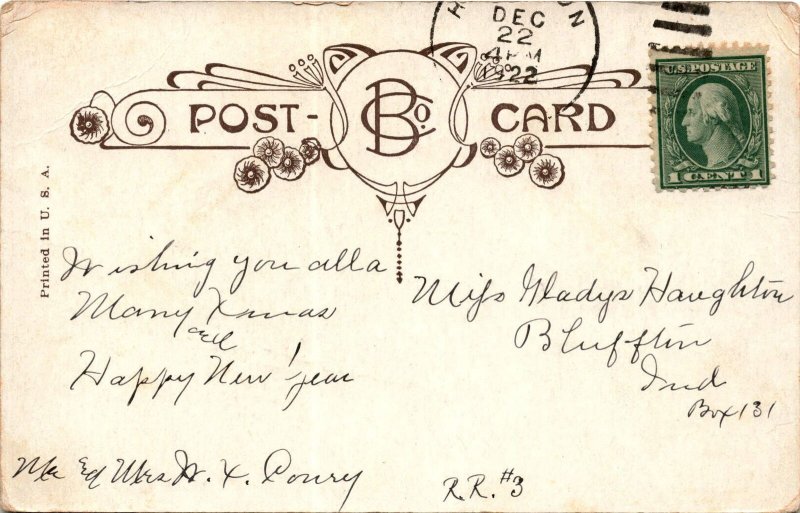 DEC
22
4 PM
1922
U.S. POSTAGE
1 CENT 1
POST-
BCCo.
CARD
Printed in U. S. A.
Wishing you all a
Many Xmas
and
Happy New Year
Miss Gladys Haughton
Bluffton
Ind
Box 131
R.R. #3
Mr Mrs